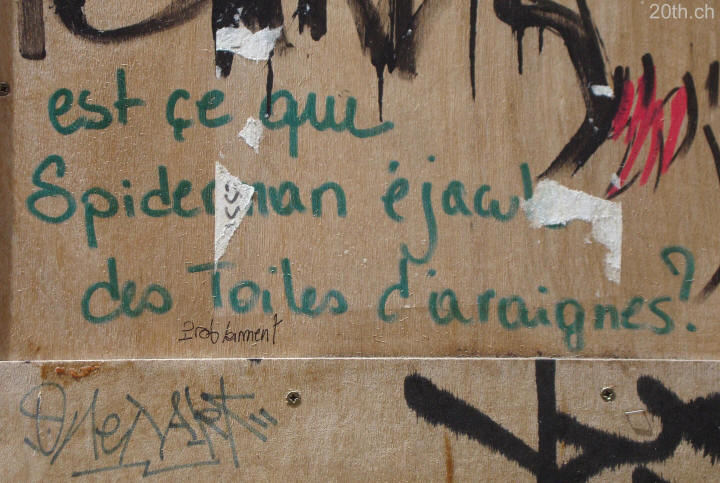 20th.ch
est çe qui
Spiderman éjacul
des Toiles d'araignes?
Probablement